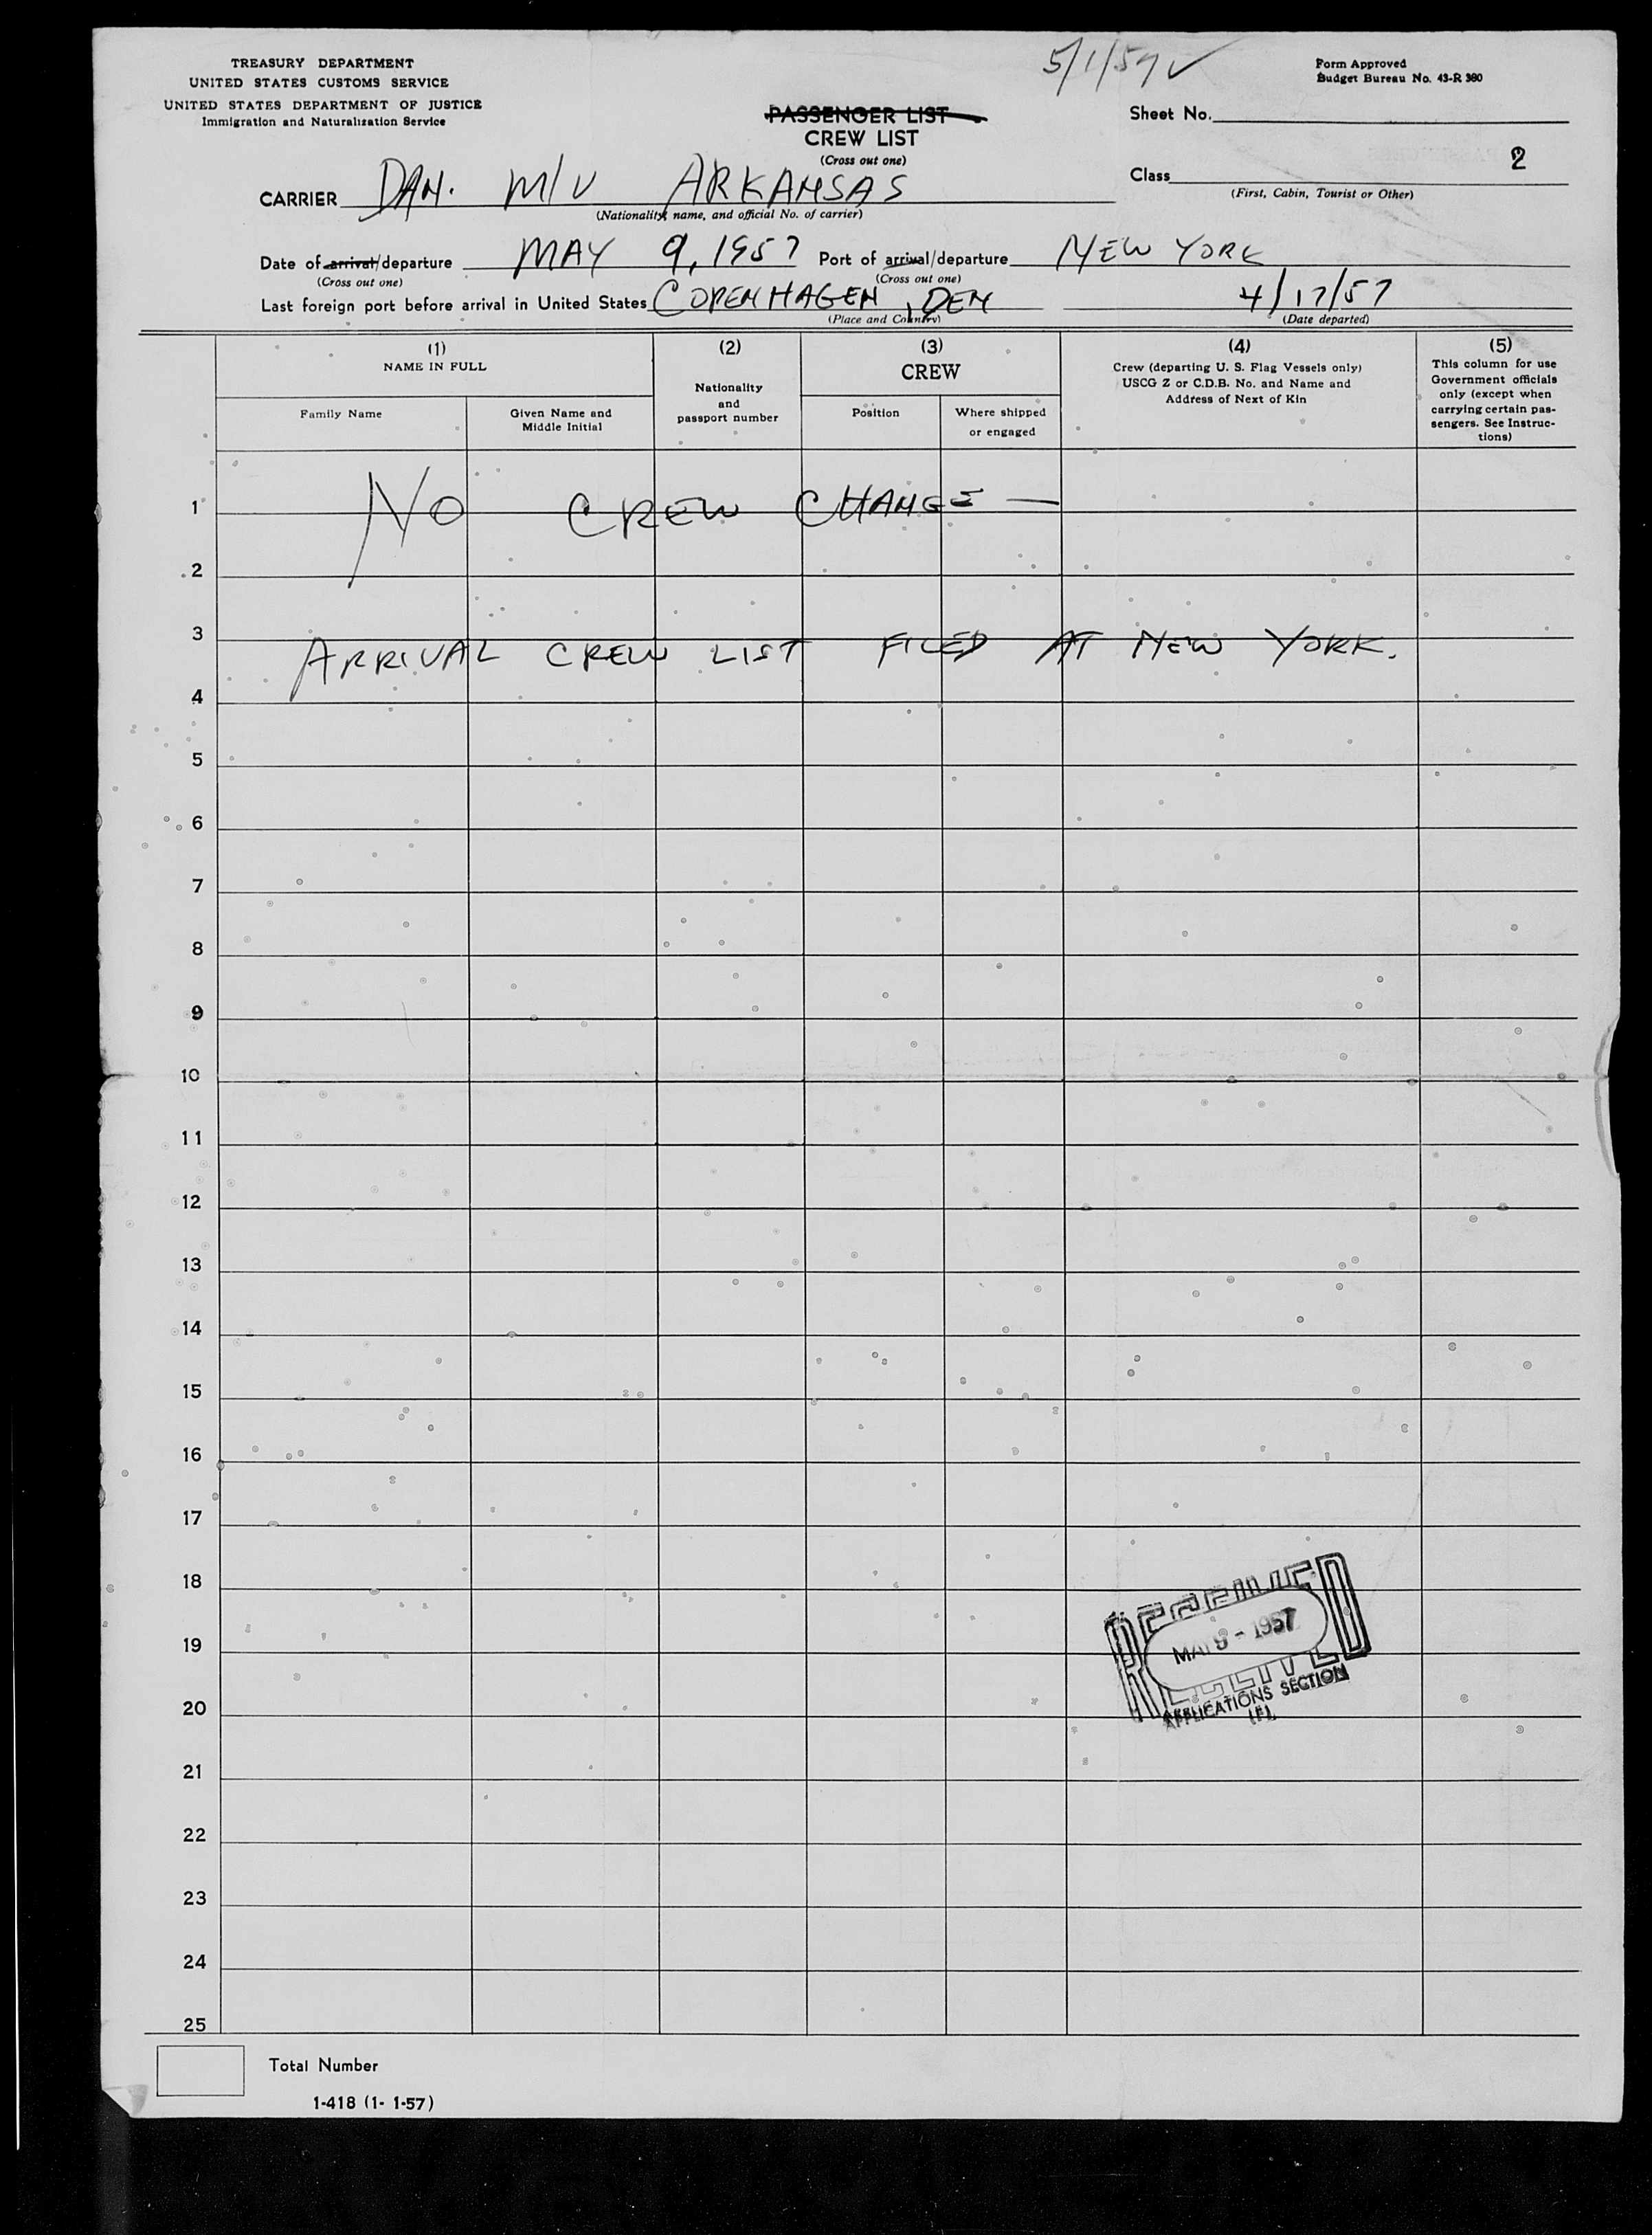 5/1/57 ✓
TREASURY DEPARTMENT
UNITED STATES CUSTOMS SERVICE
UNITED STATES DEPARTMENT OF JUSTICE
Immigration and Naturalization Service
Form Approved
Budget Bureau No. 43-R 380
PASSENGER LIST
CREW LIST
(Cross out one)
Sheet No.
Class 2
(First, Cabin, Tourist or Other)
CARRIER DAN. M/V ARKANSAS
(Nationality, name, and official No. of carrier)
Date of arrival/departure MAY 9, 1957 Port of arrival/departure NEW YORK
(Cross out one) (Cross out one)
Last foreign port before arrival in United States COPENHAGEN, DEN 4/17/57
(Place and Country) (Date departed)
(1)
NAME IN FULL
Family Name
Given Name and
Middle Initial
(2)
Nationality
and
passport number
(3)
CREW
Position
Where shipped
or engaged
(4)
Crew (departing U. S. Flag Vessels only)
USCG Z or C.D.B. No. and Name and
Address of Next of Kin
(5)
This column for use
Government officials
only (except when
carrying certain pas-
sengers. See Instruc-
tions)
1 NO CREW CHANGE —
2
3 ARRIVAL CREW LIST FILED AT NEW YORK.
4
5
6
7
8
9
10
11
12
13
14
15
16
17
18
19
20
21
22
23
24
25
RECEIVED
MAY 9 - 1957
APPLICATIONS SECTION
Total Number
1-418 (1- 1-57)